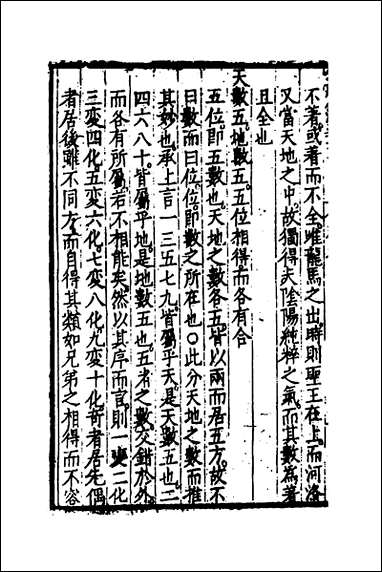 不著或著而不全唯龍馬之出時則聖王在上而河洛
又當天地之中故獨得夫陰陽純粹之氣而其數為著
且全也
天數五地數五五位相得而各有合
五位即五數也天地之數各五皆以兩而居五方故不
曰數而曰位位即數之所在也○此分天地之數而推
其妙也承上言一三五七九皆屬乎天是天數五也二
四六八十皆屬乎地是地數五也五者之數交錯於外
而各有所屬若不相能矣然以其序而言則一變二化
三変四化五変六化七変八化九変十化奇者居先偶
者居後雖不同方而自得其類如兄弟之相得而不容